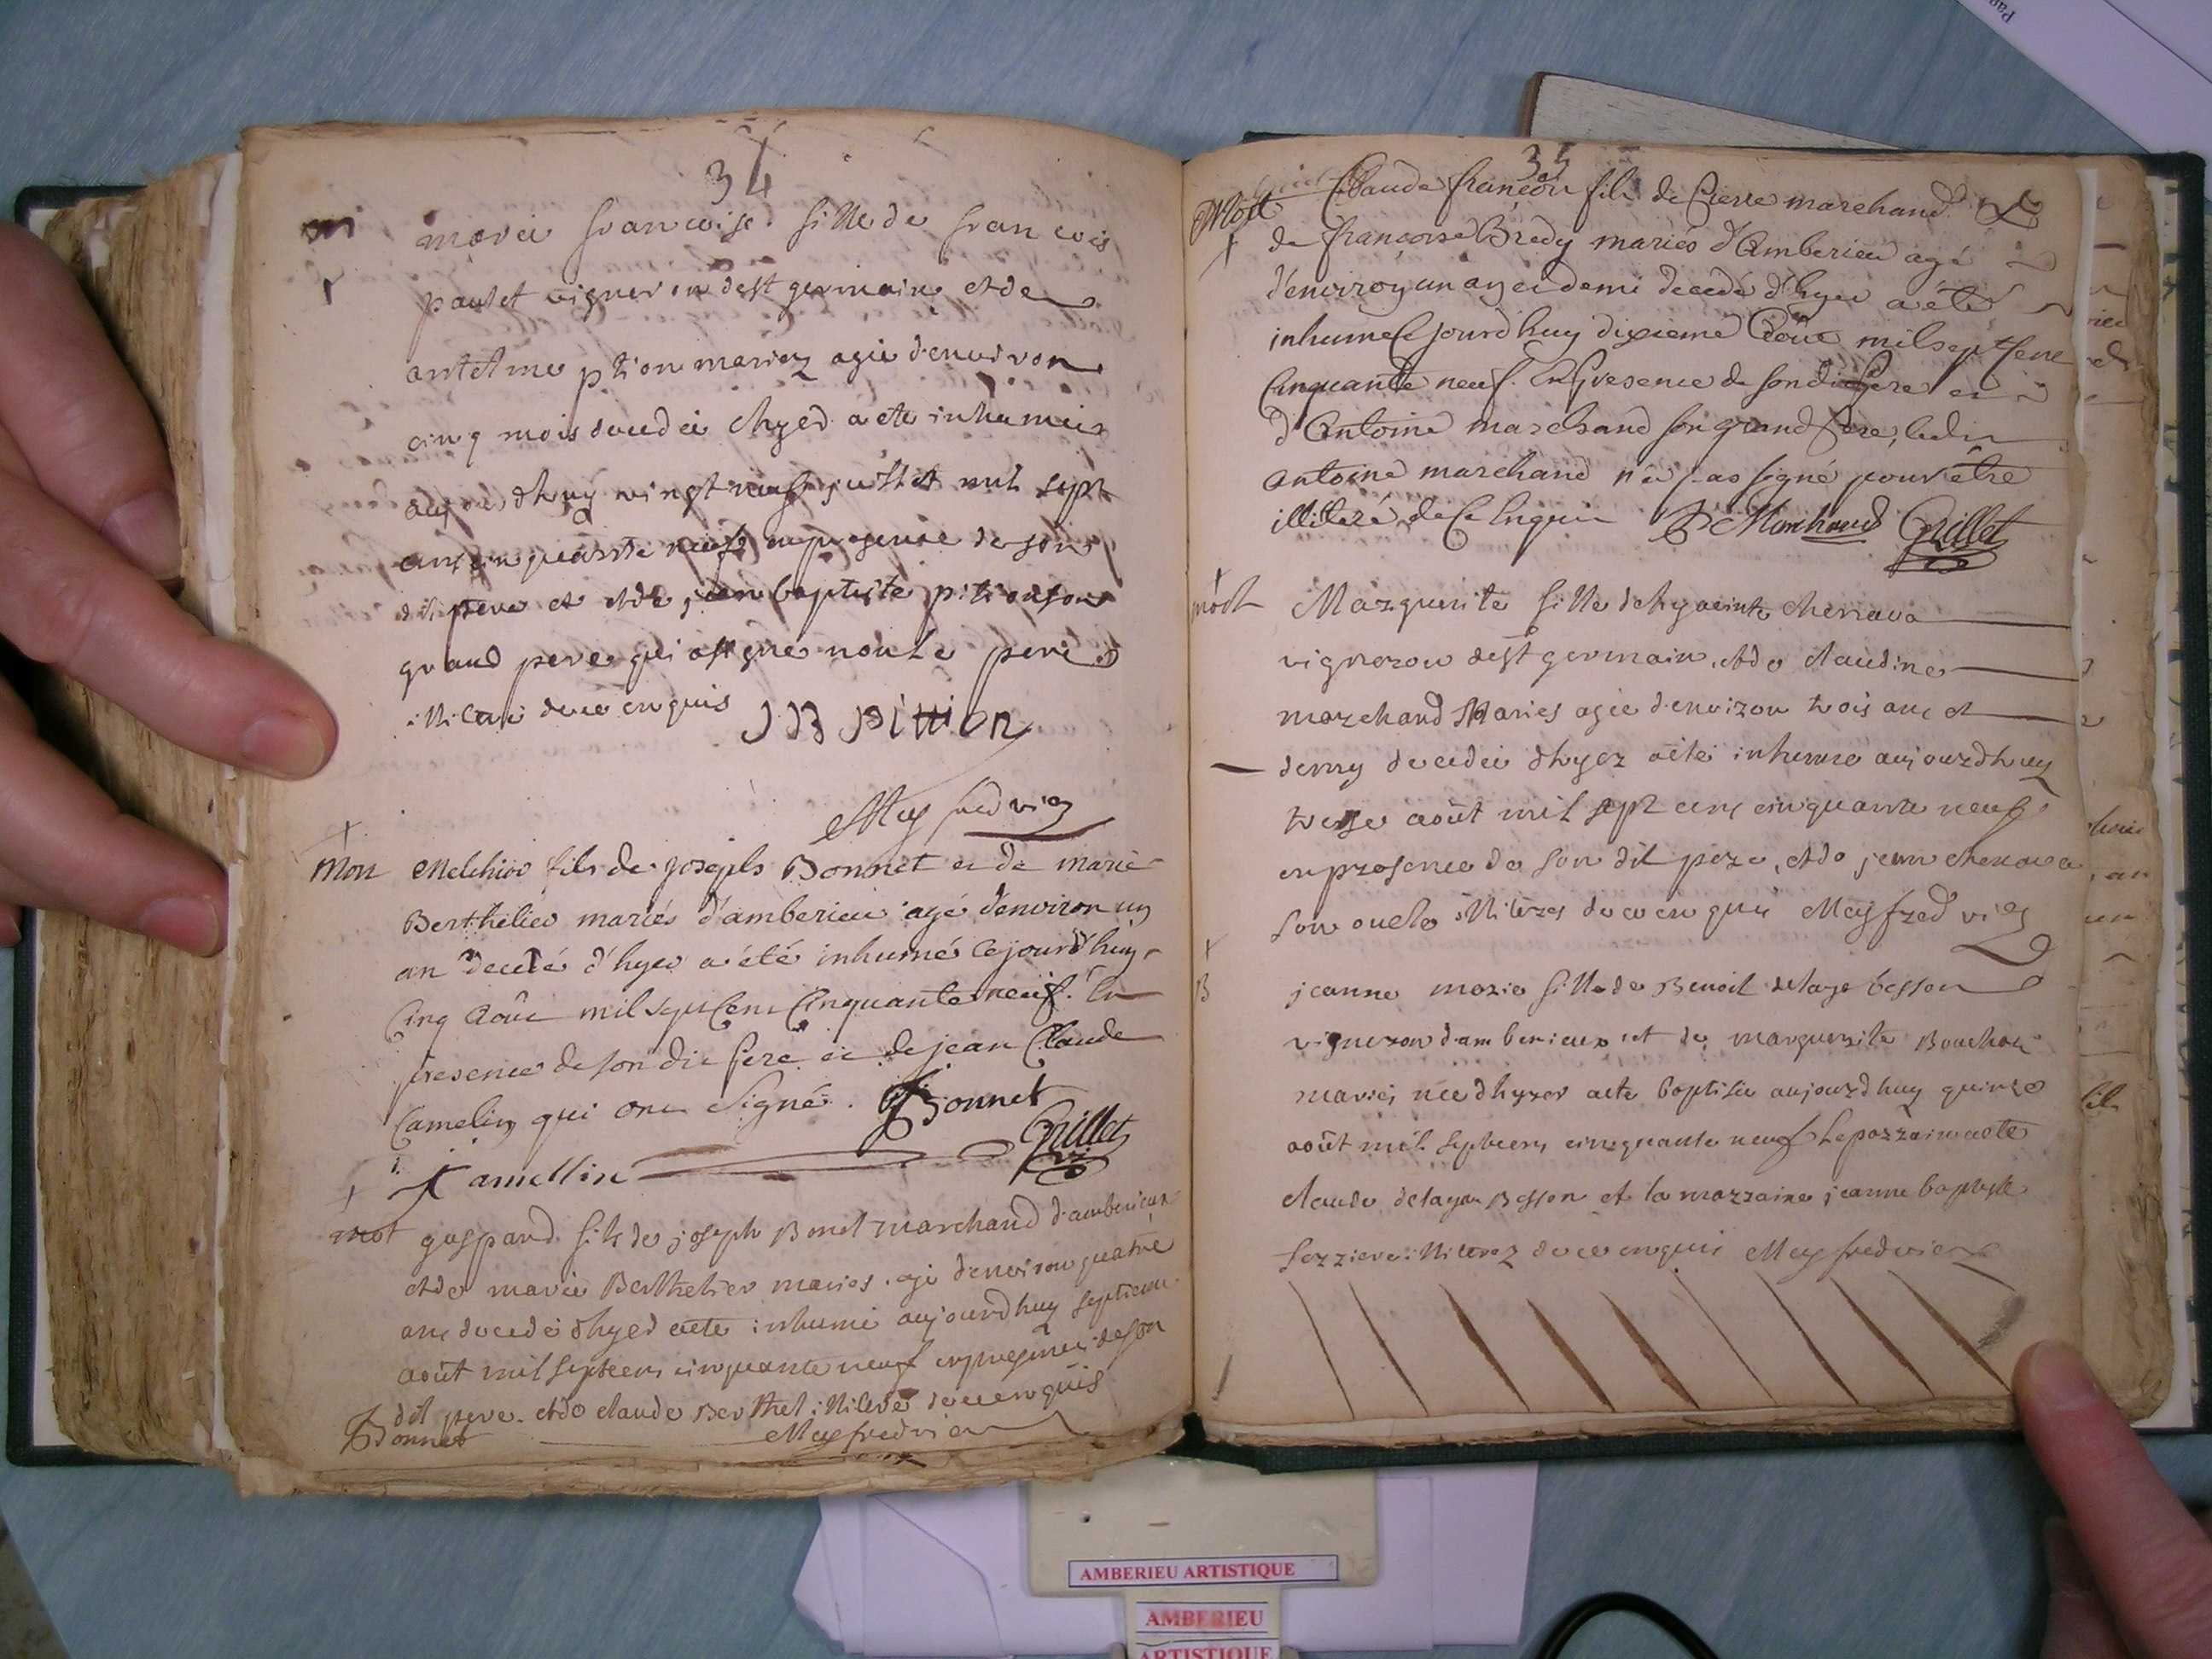 34
m marie francoise fille de francois
paulet vigneron de st germain et de
antelme ption mariez agée d'environ
cinq mois decedée dhyer a ete inhumée
aujourdhuy vingt neuf juillet mil sept
cent cinquante neuf en presence de son
dit pere et et de jean baptiste pition son
grand pere qui a signé non le pere
illiteré de ce enquis JB Pittion
Meyfred vic
Mort Melchior fils de joseph Bonnet et de marie
Berthelier mariés d'amberieu agé d'environ un
an decedé d'hyer a été inhumé cejourd'huy
Cinq Aout mil sept Cent Cinquante neuf. En
presence de son dit pere et de jean Claude
Camelin qui ont signé. J Bonnet
Camellin Grillet
mort gaspard fils de joseph Bonet marchand d'amberieux
et de marie Berthelier mariés agé d'environ quatre
ans decedé dhyer a ete inhumé aujourdhuy septieme
août mil sept cens cinquante neuf en presence de son
dit pere et de claude Berthel illiteré de ce enquis
J Bonnet Meyfred vic
35
Mort Claude françois fils de Pierre marchand &
de françoise Bredy mariés d'Amberieu agé
d'environ un an et demi decedé d'hyer a été
inhumé Ce jourdhuy dixieme Aout mil sept Cent
Cinquante neuf. En presence de son dit Pere et
d'Antoine marchand son grand Pere, ledit
antoine marchand n'a pas signé pour être
illiteré de Ce Enquis P Marchand Grillet
mort Marguerite fille de hyacinte chenava
vigneron de st germain, et de claudine
marchand Mariés agée d'environ trois ans et
demy decedée dhyer a été inhumée aujourdhuy
treise août mil sept cens cinquante neuf
en presence de son dit pere, et de jean chenava
son oncle illiterés de ce enquis Meyfred vic
B jeanne marie fille de Benoit delaye besson
vigneron d'amberieux et de marguerite Bouchon
mariés née dhyer a ete baptisée aujourdhuy quinze
août mil sept cens cinquante neuf le parrain a ete
claude delaye Besson et la marraine jeanne baptiste
ferriere illiterez de ce enquis Meyfred vic
AMBERIEU ARTISTIQUE
AMBERIEU
ARTISTIQUE